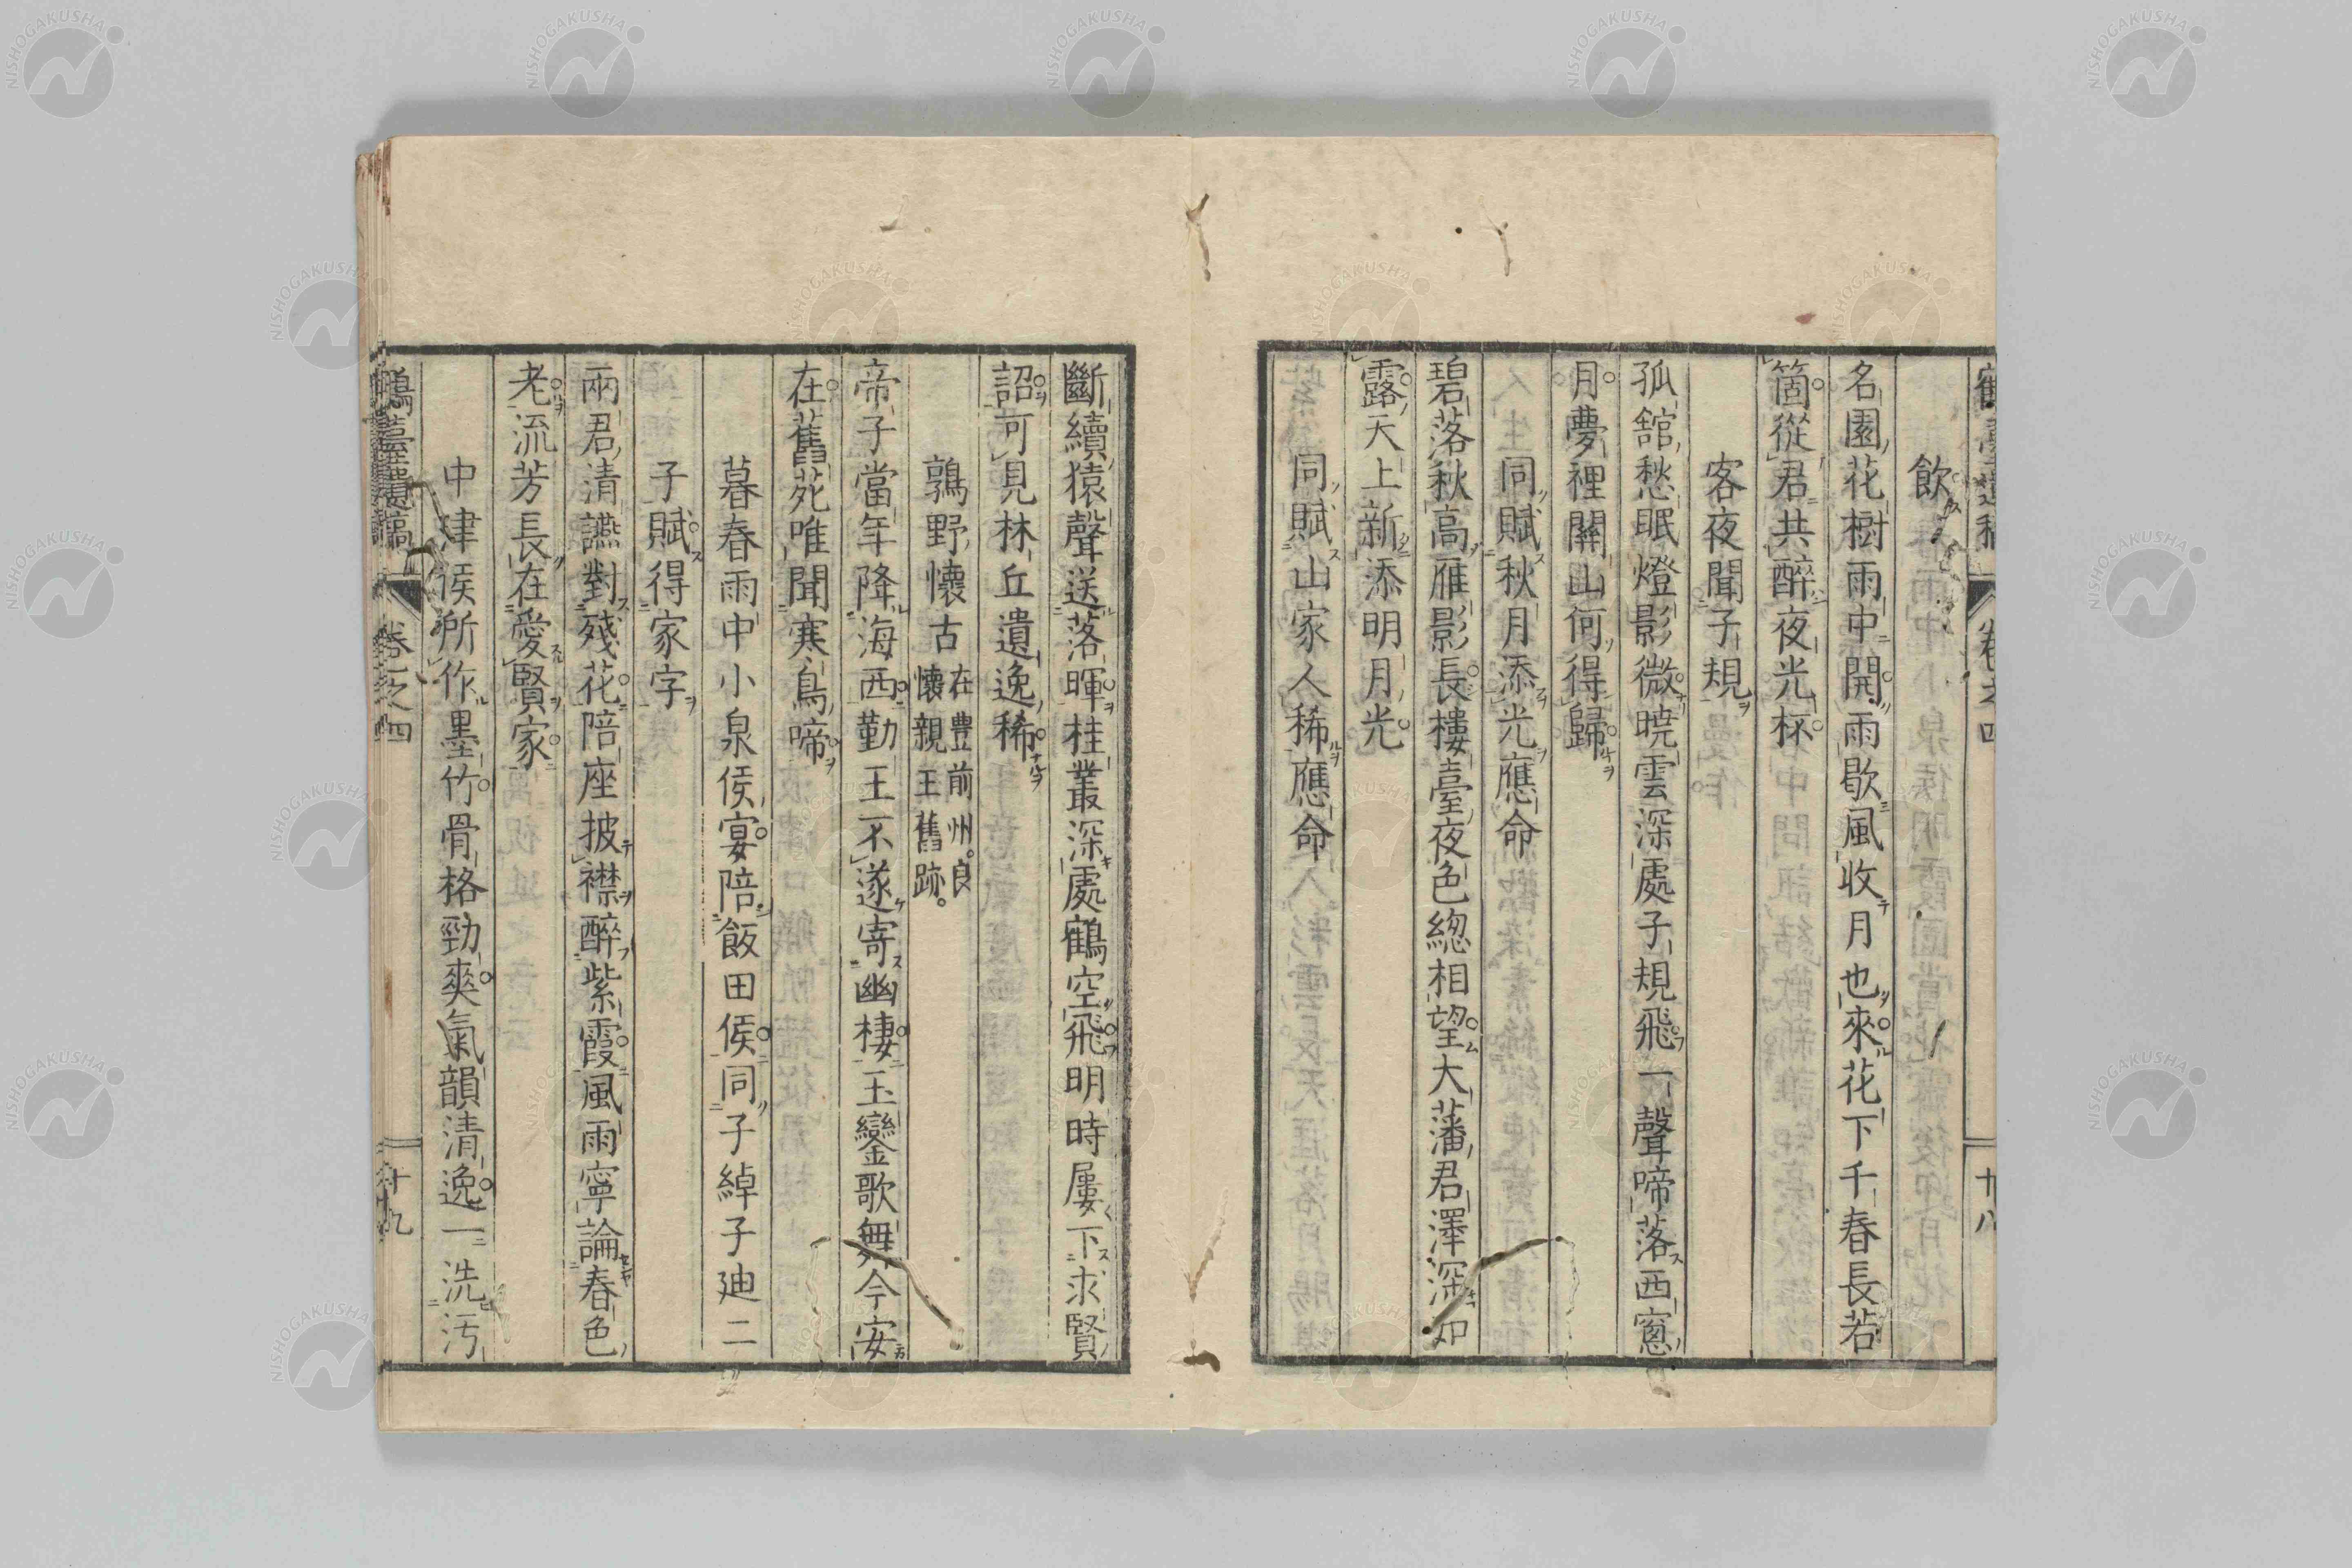 飲
名園花樹雨中開雨歇風收月也來花下千春長若
箇從君共醉夜光杯
客夜聞子規
孤館愁眠燈影微曉雲深處子規飛一聲啼落西窓
月夢裡關山何得歸
同賦秋月添光應命
碧落秋高雁影長樓臺夜色總相望大藩君澤深如
露天上新添明月光
同賦山家人稀應命
斷續猿聲送落暉桂叢深處鶴空飛明時屢下求賢
詔可見林丘遺逸稀
鶉野懷古 在豊前州良
懷親王舊跡
帝子當年降海西勤王不遂寄幽棲玉鑾歌舞今安
在舊苑唯聞寒鳥啼
暮春雨中小泉侯宴陪飯田侯同子綽子迪二
子賦得家字
兩君清讌對殘花陪座披襟醉紫霞風雨寧論春色
老流芳長在愛賢家
中津侯所作墨竹骨格勁爽氣韻清逸一洗汚
卷之四
十九
十八
NISHOGAKUSHA